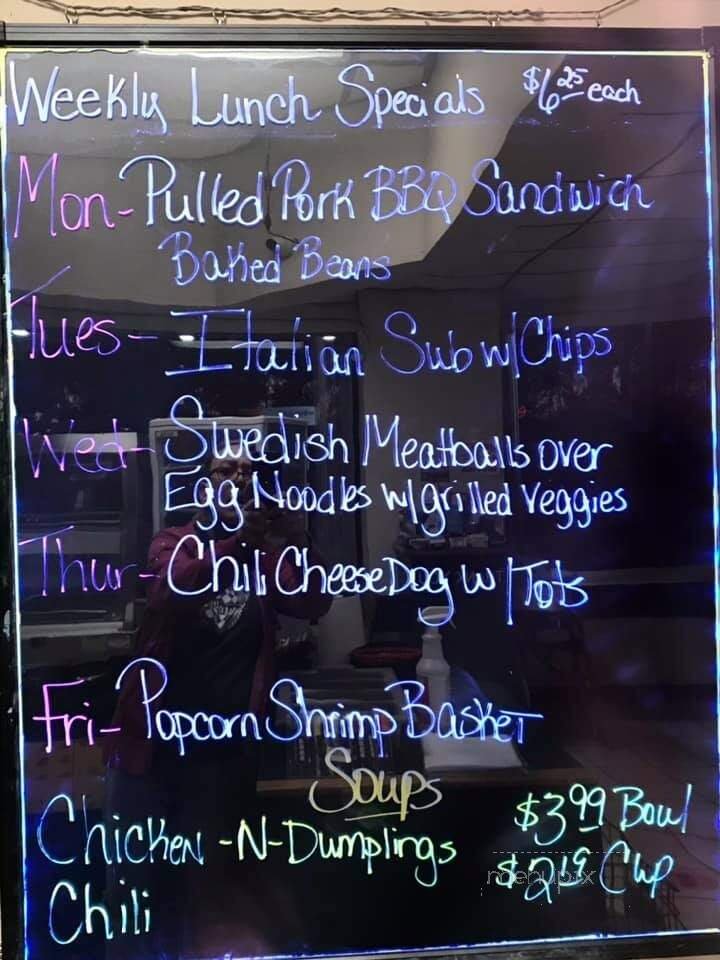 Weekly Lunch Specials $6.25 each
Mon- Pulled Pork BBQ Sandwich
Baked Beans
Tues- Italian Sub w/Chips
Wed- Swedish Meatballs over
Egg Noodles w/grilled Veggies
Thur- Chili Cheese Dog w/Tots
Fri- Popcorn Shrimp Basket
Soups
Chicken -N- Dumplings $3.99 Bowl
menupix $2.19 Cup
Chili